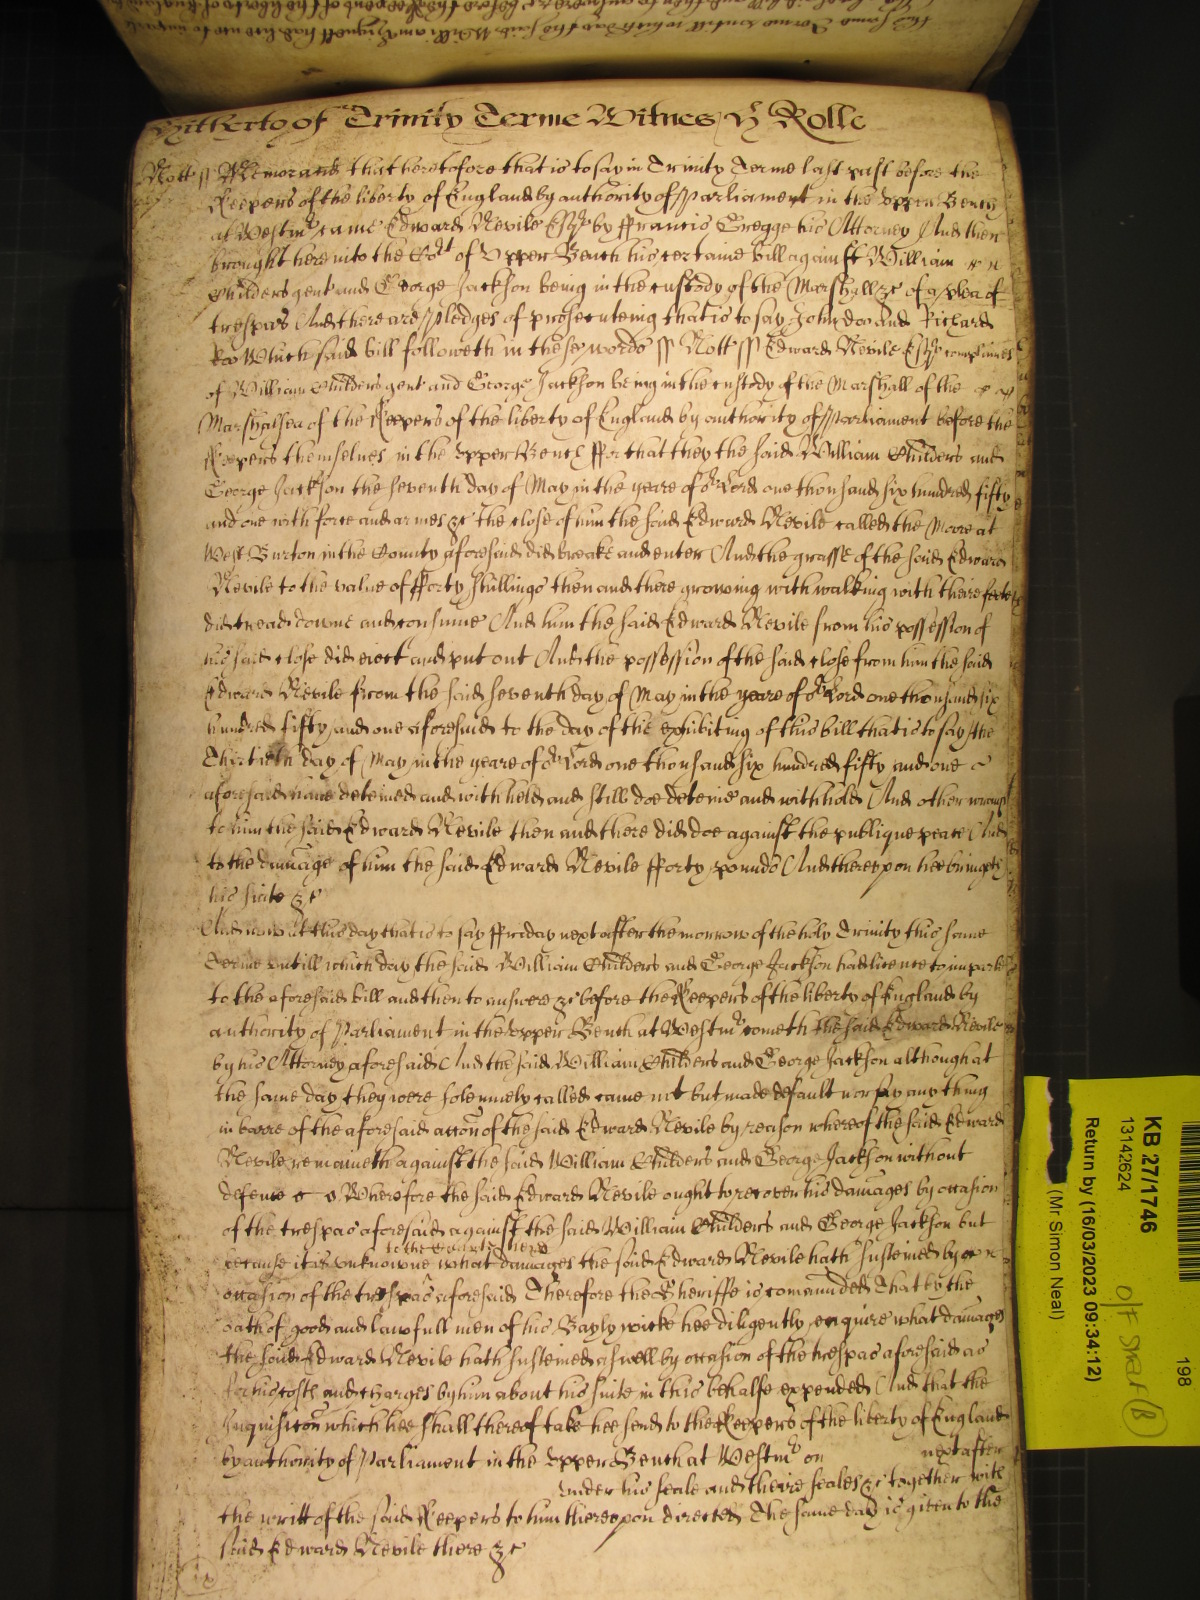 Hitherto of Trinity Terme Witnes H Rolle
Nott ss Memorand that heretofore that is to say in Trinity Terme last past before the
Keepers of the liberty of England by authority of Parliament in the Upper Bench
at Westmr came Edward Nevile Esqr by Francis Gregge his Attorney And then
brought here into the Cort of Upper Bench his certaine bill against William
Childers gent and George Jackson being in the custody of the Marshall &c of a plea of
trespas And there are pledges of prosecuteing that is to say John doo and Richard
Roo Which said bill followeth in these words ss Nott ss Edward Nevile Esqr complaines
of William Childers gent and George Jackson being in the custody of the Marshall of the
Marshalsea of the Keepers of the liberty of England by authority of Parliament before the
Keepers themselues in the Upper Bench ffor that they the said William Childers and
George Jackson the seventh day of May in the yeare of or Lord one thousand six hundred fifty
and one with force and armes &c the close of him the said Edward Nevile called the Moore at
West Burton in the County aforesaid did breake and enter And the grasse of the said Edward
Nevile to the value of fforty shillings then and there growing with walking with theire feete
did tread downe and consume And him the said Edward Nevile from his possession of
his said close did eiect and put out And the possession of the said close from him the said
Edward Nevile from the said seventh day of May in the yeare of or Lord one thousand six
hundred fifty and one aforesaid to the day of the exhibiting of this bill that is to say the
Thirtieth day of May in the yeare of or Lord one thousand six hundred fifty and one
aforesaid have deteined and withheld and still doe deteine and withhold And other wrongs
to him the said Edward Nevile then and there did doe against the publique peace And
to the damage of him the said Edward Nevile fforty pounds And thereupon hee bringes
his suite &c
And now at this day that is to say ffriday next after the morrow of the holy Trinity this same
Terme untill which day the said William Childers and George Jackson had licence to imparle
to the aforesaid bill and then to answere &c before the Keepers of the liberty of England by
authority of Parliament in the Upper Bench at Westmr cometh the said Edward Nevile
by his Attorney aforesaid And the said William Childers and George Jackson although at
the same day they were solemnely called came not but made default nor say any thing
in barre of the aforesaid accon of the said Edward Nevile by reason whereof the said Edward
Nevile remaineth against the said William Childers and George Jackson without
defence &c Wherefore the said Edward Nevile ought to recover his damages by occasion
of the trespas aforesaid against the said William Childers and George Jackson but
to the Court here
because it is unknowne what damages the said Edward Nevile hath susteined by
occasion of the trespas aforesaid Therefore the Sheriffe is comanded That by the
oath of good and lawfull men of his Baylywicke hee diligently enquire what damages
the said Edward Nevile hath susteined aswell by occasion of the trespas aforesaid as
for his costs and charges by him about his suite in this behalfe expended And that the
Inquisicon which hee shall thereof take hee send to the Keepers of the liberty of England
by authority of Parliament in the Upper Bench at Westmr on next after
under his seale and theire seales &c together with
the writt of the said Keepers to him thereupon directed The same day is given to the
said Edward Nevile there &c
KB 27/1746
13142624
Return by (16/03/2023 09:34:12)
(Mr Simon Neal)
198